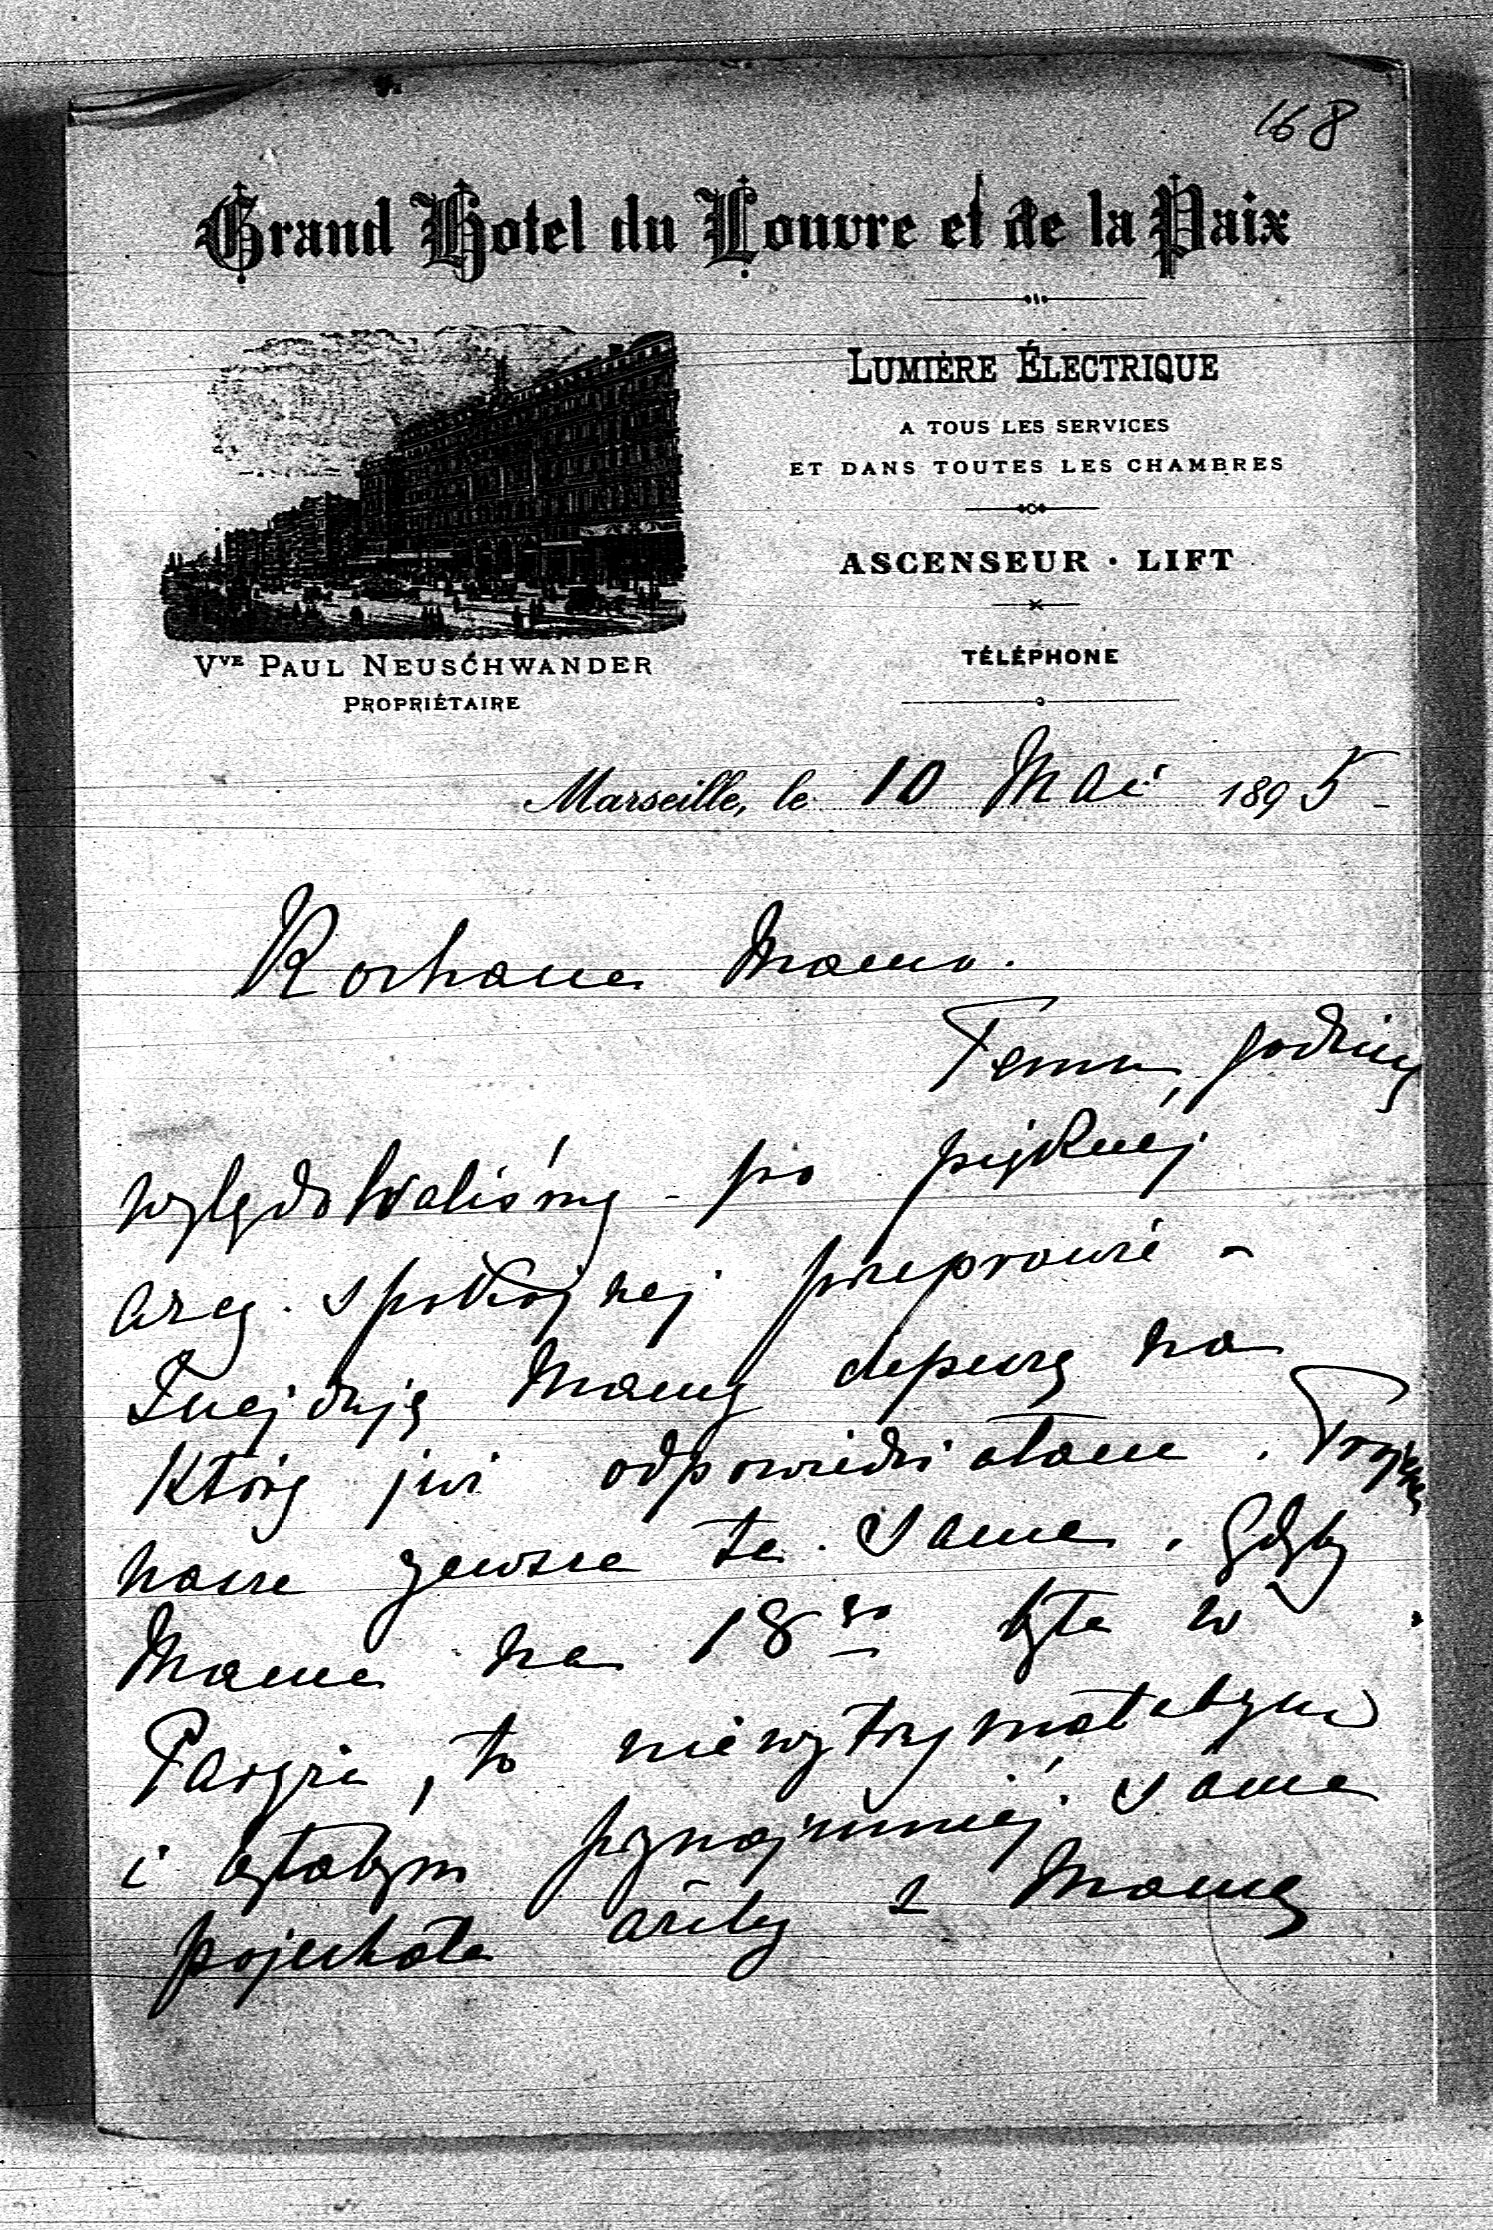 168
Grand Hotel du Louvre et de la Paix
LUMIÈRE ÉLECTRIQUE
A TOUS LES SERVICES
ET DANS TOUTES LES CHAMBRES
ASCENSEUR · LIFT
TÉLÉPHONE
VVE PAUL NEUSCHWANDER
PROPRIÉTAIRE
Marseille, le 10 Mai 1895
Kochana Mamo.
Temu godzinę
wylądowaliśmy - po pięknej
arcy. spokojnej przeprawie -
Znajduję Mamy depeszę na
którą już odpowiedziałam.
nasze zawsze te same. Gdyby
Mama na 18go była w
Paryżu, to niewytrzymałabym
i byłabym przynajmniej sama
pojechała ażeby z Mamą